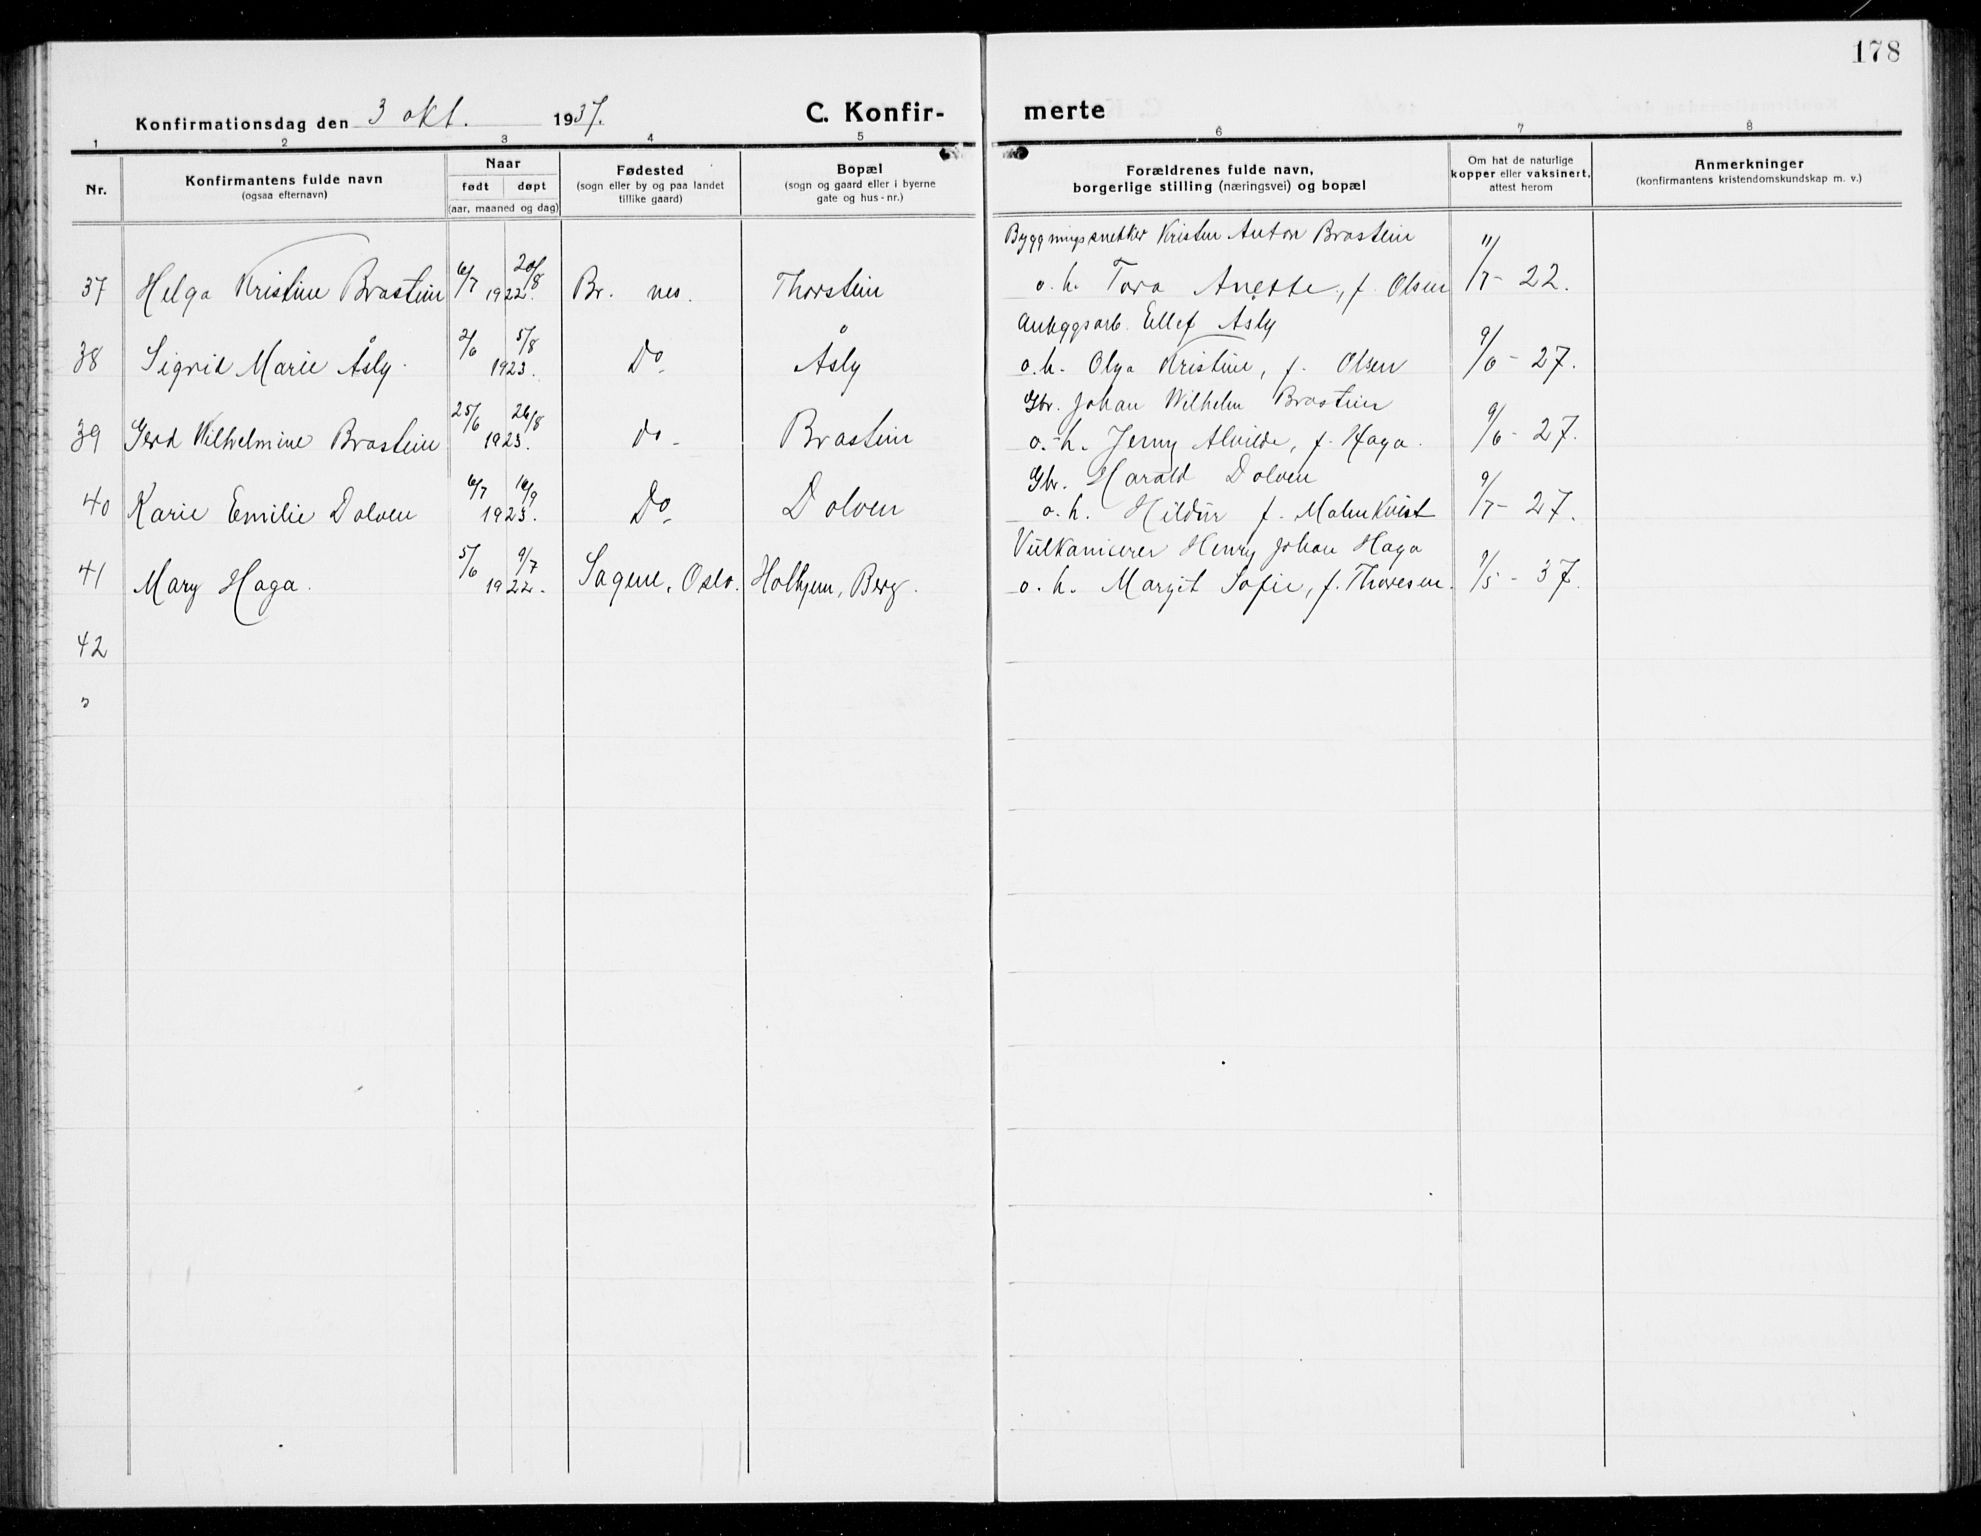 178
Konfirmationsdag den 3 okt. 1937.
C. Konfir-
merte
1 2 3 4 5 6 7 8
Nr.
Konfirmantens fulde navn
(ogsaa efternavn)
Naar
født døpt
(aar, maaned og dag)
Fødested
(sogn eller by og paa landet
tillike gaard)
Bopæl
(sogn og gaard eller i byerne
gate og hus-nr.)
Forældrenes fulde navn,
borgerlige stilling (næringsvei) og bopæl
Om hat de naturlige
kopper eller vaksinert,
attest herom
Anmerkninger
(konfirmantens kristendomskundskap m. v.)
Byggningssnekker Kristen Anton Brastein
37 Helga Kristine Brastein 6/7 20/8 1922. Br. nes. Thorstein o. h. Tora Anette, f. Olsen 11/7 - 22.
Anleggsarb. Ellef Åsly
38 Sigrid Marie Åsly. 2/6 5/8 1923. Do Åsly o. h. Olga Kristine, f. Olsen 9/6 - 27.
Gbr. Johan Wilhelm Brastein
39 Gerd Wilhelmine Brastein 25/6 26/8 1923. do - Brastein o. h. Jenny Alvilde, f. Haga. 9/6 - 27.
Gbr. Harald Dolven
40 Karie Emilie Dolven 6/7 16/9 1923. Do Dolven o. h. Hildur f. Malmkvist 9/7 - 27.
Vulkaniserer Henry Johan Haga
41 Mary Haga. 5/6 9/7 1922. Sagene, Oslo. Holtjern, Berg. o. h. Margit Sofie, f. Thoresen. 9/5 - 37.
42